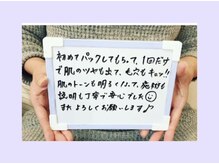 初めてパックしてもらって、1回だけ
で肌のツヤも出て、毛穴もキュッ!!
肌のトーンも明るくなって、施術も
説明も丁寧で安心でした☺
またよろしくお願いします♪